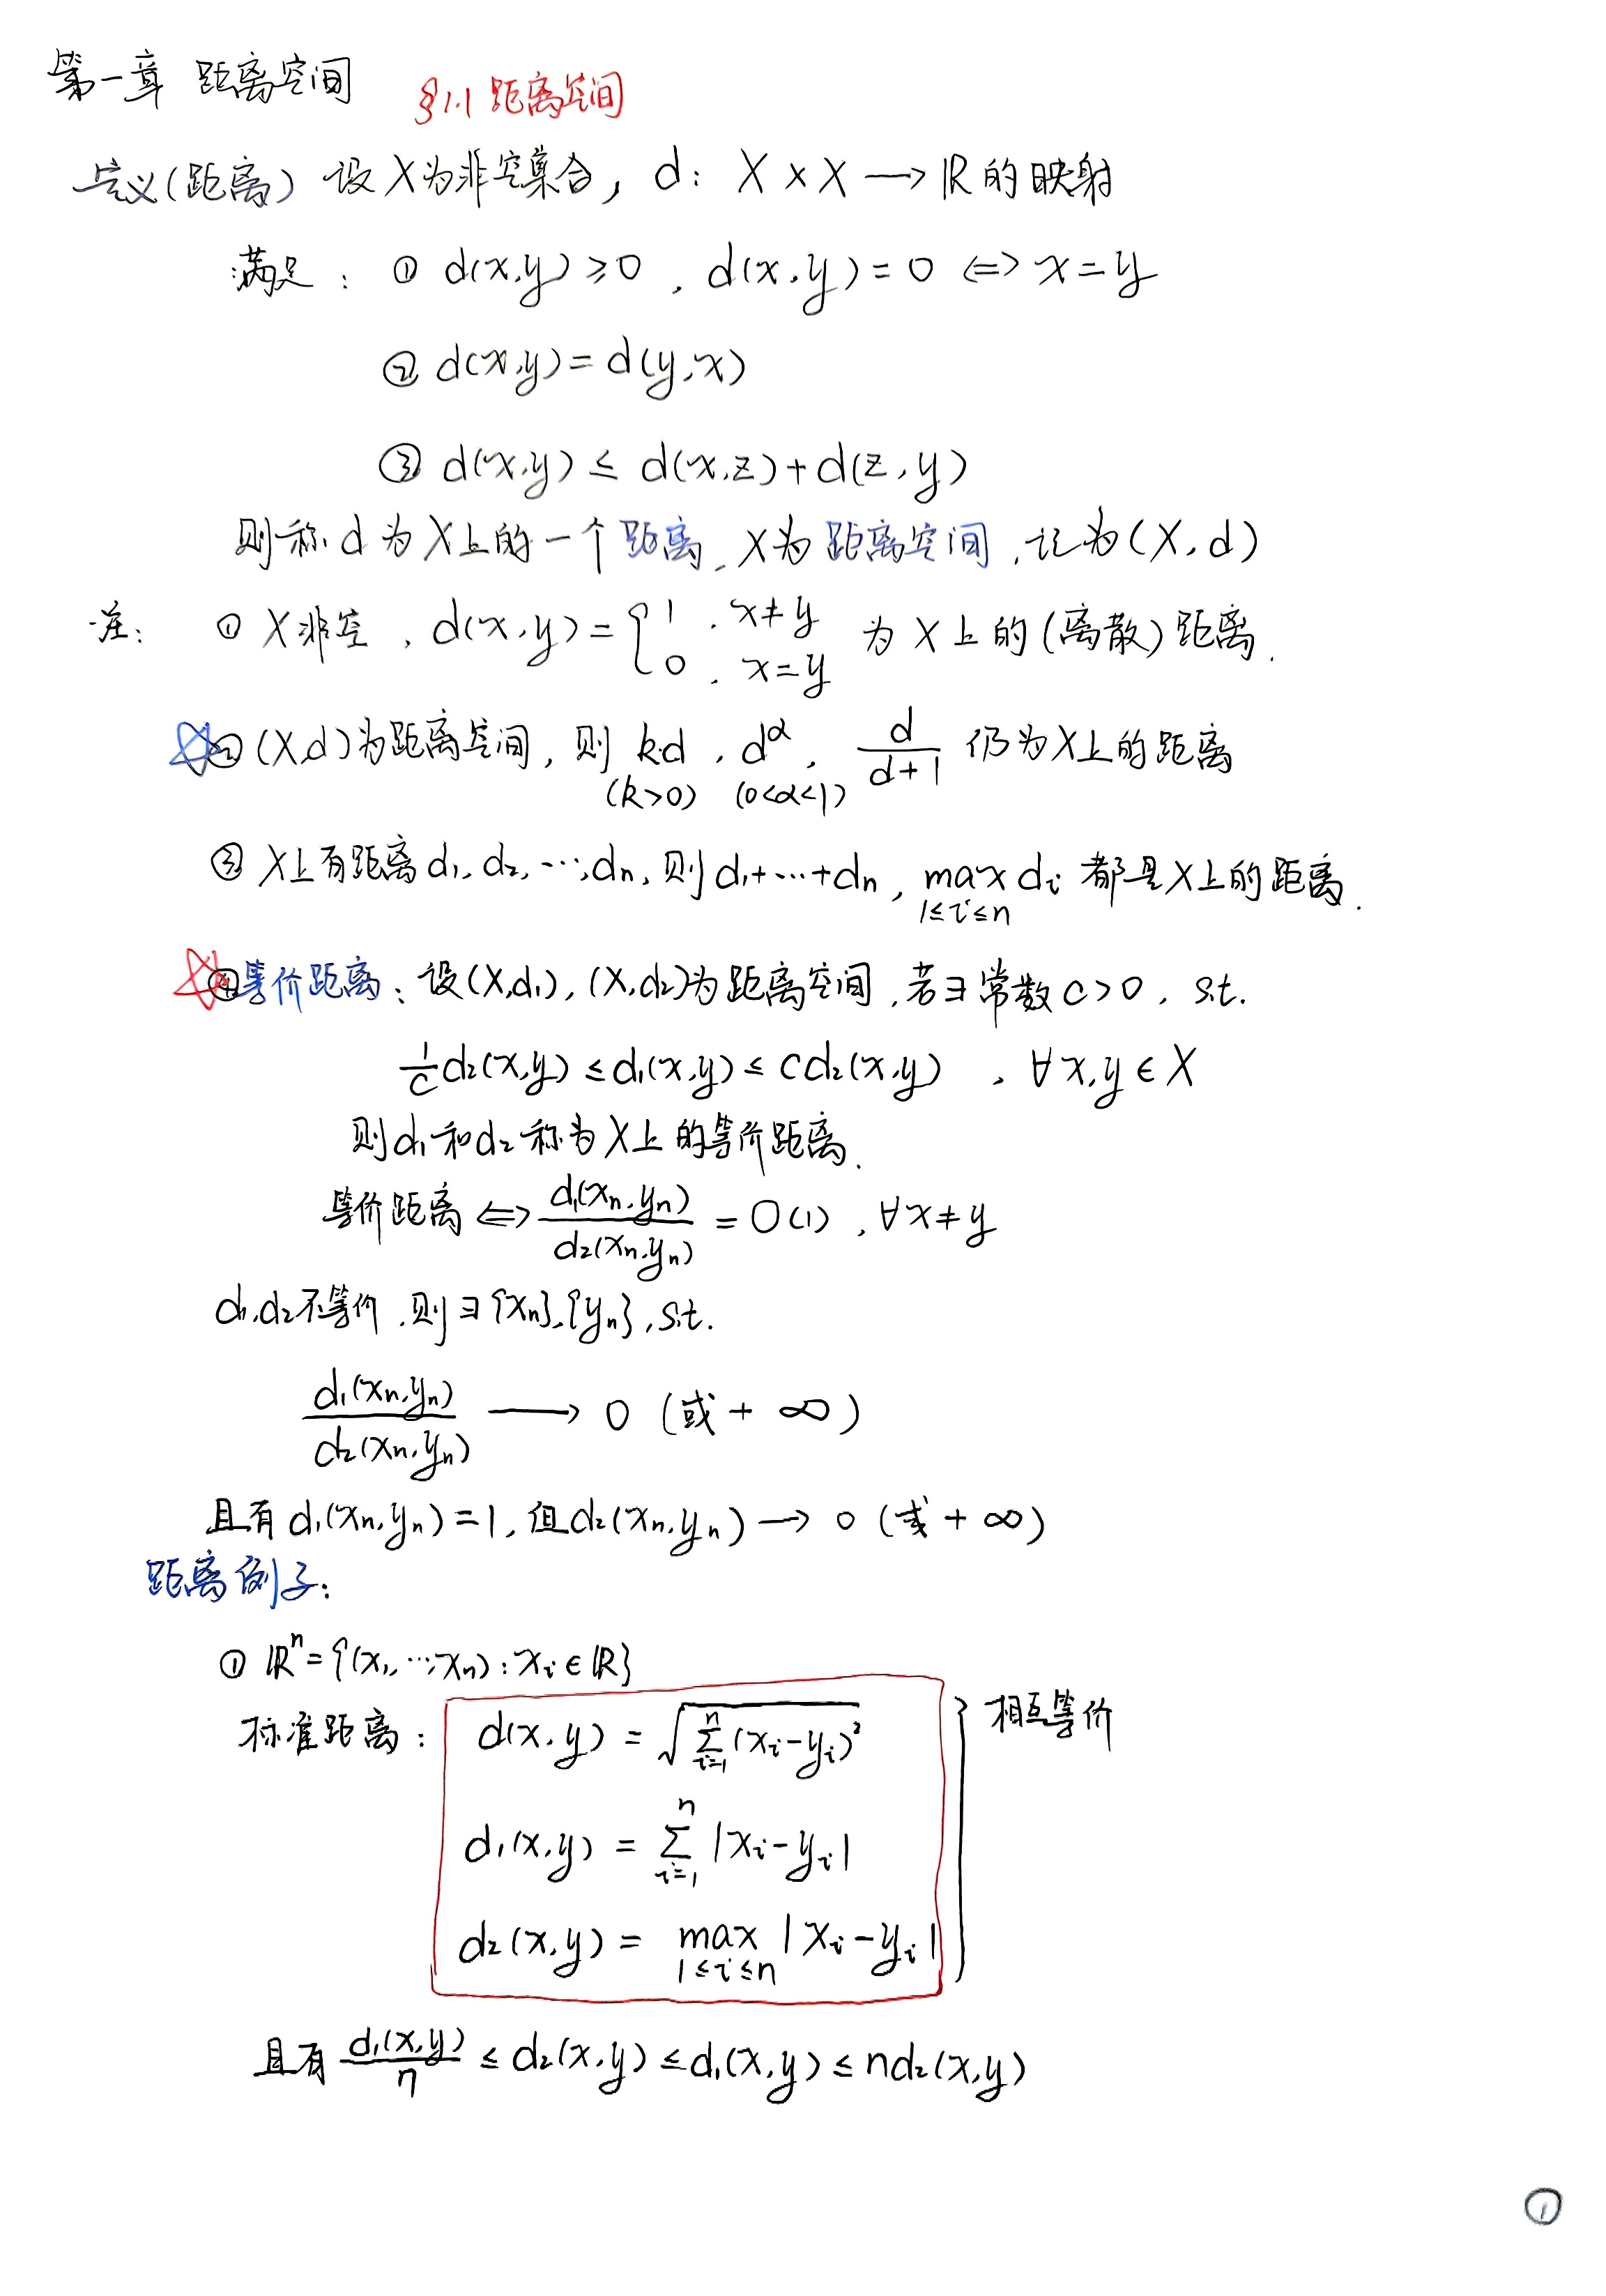 第一章 距离空间 §1.1 距离空间
定义(距离) 设X为非空集合, d: X × X → ℝ 的映射
满足: ① d(x,y) ≥ 0, d(x,y) = 0 ⇔ x = y
② d(x,y) = d(y,x)
③ d(x,y) ≤ d(x,z) + d(z,y)
则称 d 为 X 上的一个距离, X 为距离空间, 记为 (X, d)
注: ① X 非空, d(x,y) = { 1, x ≠ y
0, x = y 为 X 上的(离散)距离.
② (X,d)为距离空间, 则 k·d, d^α, d/(d+1) 仍为X上的距离
(k>0) (0<α<1)
③ X上有距离 d₁, d₂, ⋯, dₙ, 则 d₁+⋯+dₙ, max dᵢ 都是X上的距离.
1≤i≤n
④ 等价距离: 设(X,d₁), (X,d₂)为距离空间, 若∃常数 C>0, s.t.
1/C d₂(x,y) ≤ d₁(x,y) ≤ C d₂(x,y), ∀ x,y ∈ X
则 d₁ 和 d₂ 称为 X 上的等价距离.
等价距离 ⇔ d₁(xₙ,yₙ)/d₂(xₙ,yₙ) = O(1), ∀ x ≠ y
d₁,d₂不等价, 则∃{xₙ},{yₙ}, s.t.
d₁(xₙ,yₙ)/d₂(xₙ,yₙ) → 0 (或 + ∞)
且有 d₁(xₙ,yₙ) = 1, 但 d₂(xₙ,yₙ) → 0 (或 + ∞)
距离例子:
① ℝⁿ = {(x₁,⋯,xₙ): xᵢ ∈ ℝ}
标准距离: d(x,y) = √(∑ᵢ₌₁ⁿ (xᵢ-yᵢ)²) } 相互等价
d₁(x,y) = ∑ᵢ₌₁ⁿ |xᵢ-yᵢ|
d₂(x,y) = max |xᵢ-yᵢ|
1≤i≤n
且有 d₁(x,y)/n ≤ d₂(x,y) ≤ d₁(x,y) ≤ nd₂(x,y)
①